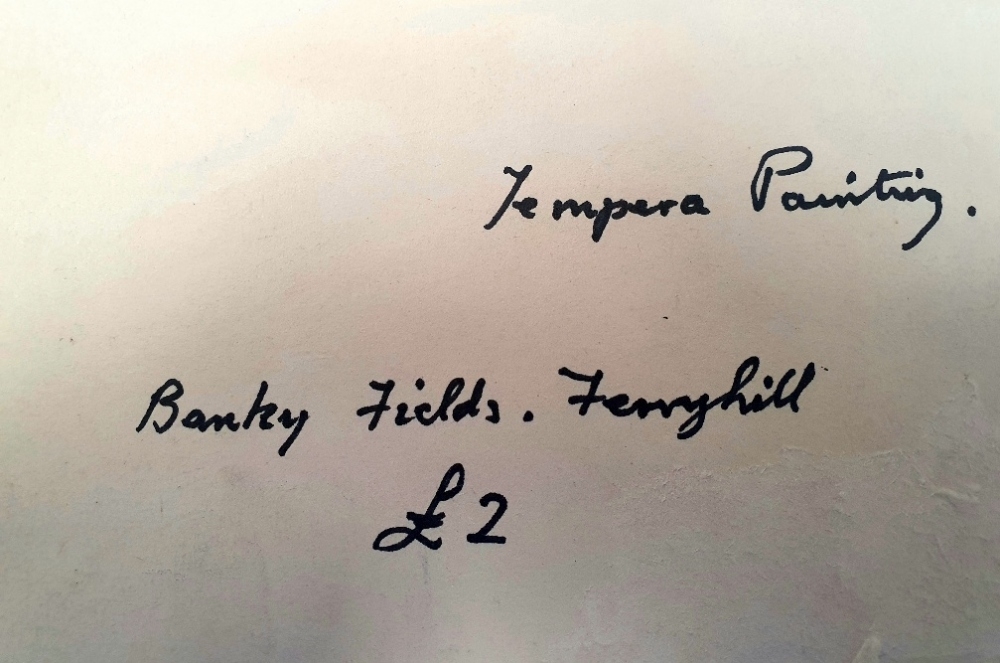 Tempera Painting.
Banky Fields. Ferryhill
£2